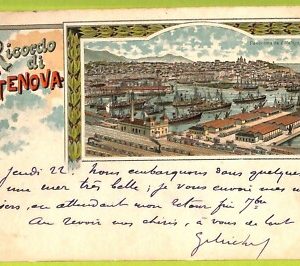 Ricordo
di
GENOVA
Panorama da
Jeudi 22 Nous embarquons dans quelques
une mer très belle ; je vous envoie mes
en attendant mon retour fin 7bre
Au revoir mes chéris, à vous de tout